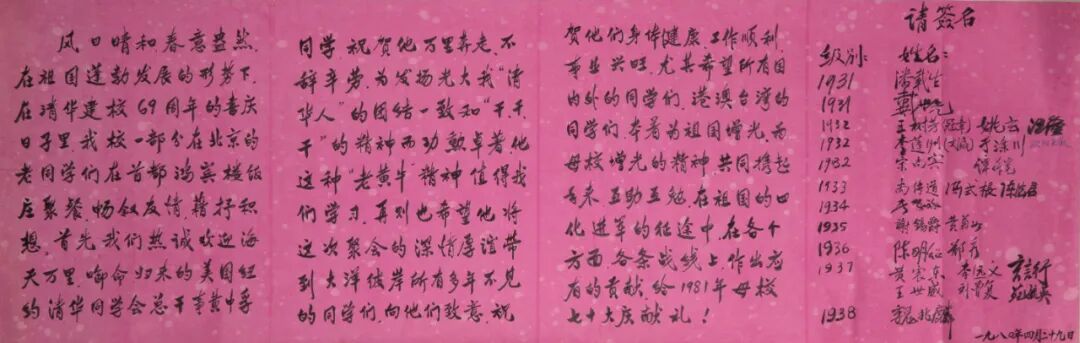 风日晴和春意盎然,
在祖国蓬勃发展的形势下,
在清华建校69周年的喜庆
日子里,我校一部分在北京的
老同学们在首都鸿宾楼饭
庄聚餐,畅叙友情,藉抒积
想。首先我们热诚欢迎海
天万里,啣命归来的美国纽
约清华同学会总干事黄中孚
同学,祝贺他万里奔走,不
辞辛劳,为发扬光大我"清
华人"的团结一致和"干,干,
干"的精神而功勳卓著他
这种"老黄牛"精神值得我
们学习。再则也希望他将
这次聚会的深情厚谊带
到大洋彼岸所有多年不见
的同学们,向他们致意,祝
贺他们身体健康,工作顺利,
事业兴旺。尤其希望所有国
内外的同学们,港澳台湾的
同学们,本着为祖国增光,为
母校增光的精神,共同携起
手来,互助互勉,在祖国的四
化进军的征途中,在各个
方面,各条战线上,作出应
有的贡献,给1981年母校
七十大庆献礼!
请签名
级别: 姓名:
1931
1931
1932 王树芳
1932
1932 宋尚宾
1933
1934
1935
1936 陈明绍
1937
王世威
1938 魏兆麟
一九八〇年四月二十九日